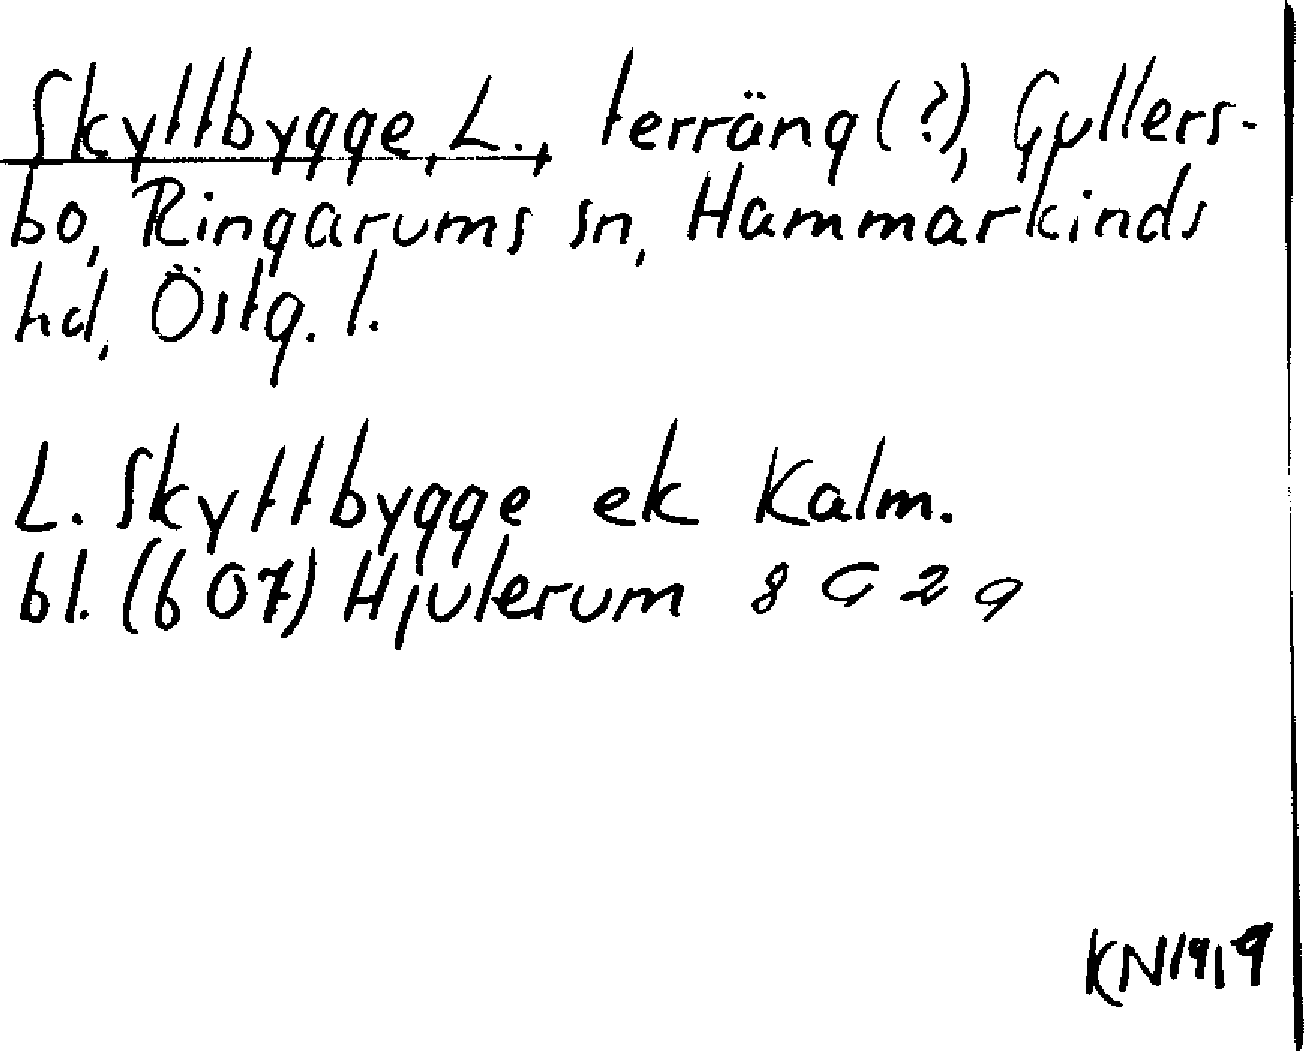 Skyttbygge, L., terräng (?), Gullers-
bo, Ringarums sn, Hammarkinds
hd, Östg. l.
L. Skyttbygge ek Kalm.
bl. (607) Hjulerum 8 G 2 g
KN 1919